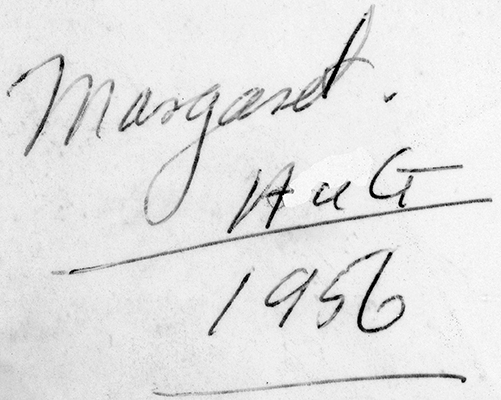 Margaret.
AuG
1956